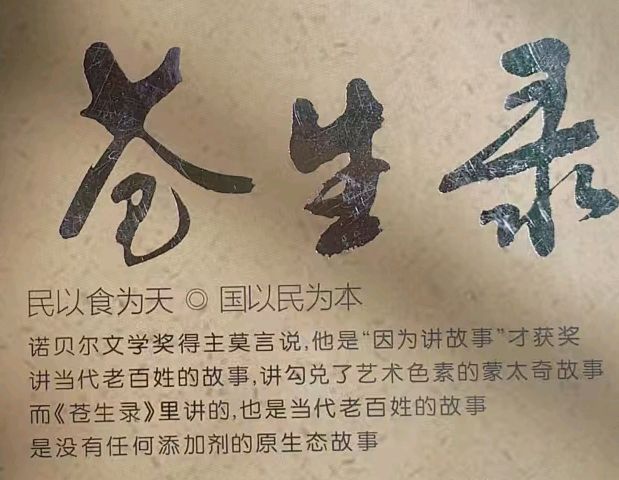 苍生录
民以食为天 ◎ 国以民为本
诺贝尔文学奖得主莫言说,他是“因为讲故事”才获奖
讲当代老百姓的故事,讲勾兑了艺术色素的蒙太奇故事
而《苍生录》里讲的,也是当代老百姓的故事
是没有任何添加剂的原生态故事